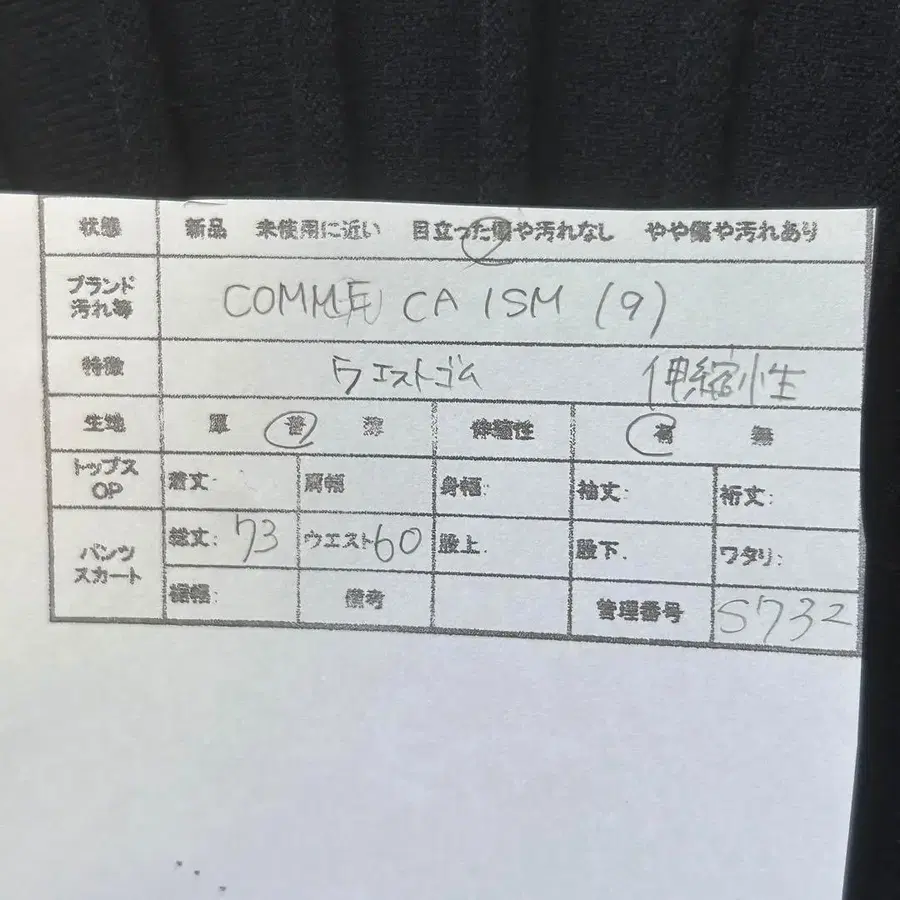 状態 新品 未使用に近い 目立った傷や汚れなし やや傷や汚れあり
ブランド
汚れ等 COMME CA ISM (9)
特徴 ウエストゴム 伸縮性
生地 厚 普 薄 伸縮性 有 無
トップス
OP 着丈: 肩幅 身幅: 袖丈: 裄丈:
パンツ
スカート 総丈: 73 ウエスト60 股上. 股下. ワタリ:
裾幅: 備考 管理番号 S732